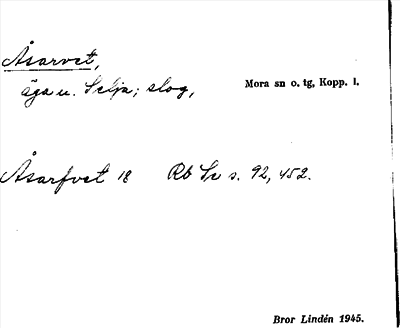 Åsarvet,
äga u. Selja; slog,
Mora sn o. tg, Kopp. l.
Åsarfvet 18 Rb s. 92, 452.
Bror Lindén 1945.